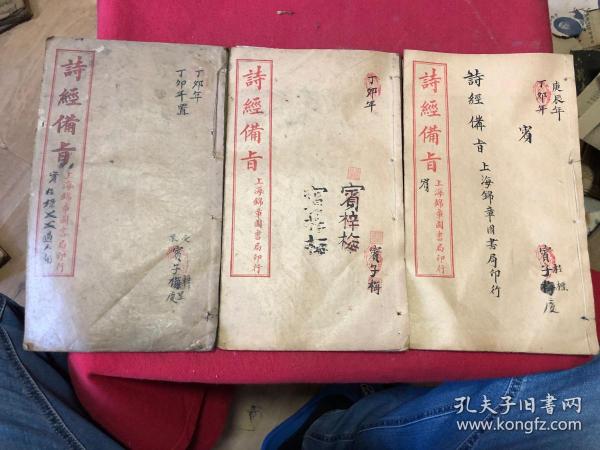 詩經備旨
上海錦章圖書局印行
丁卯年
丁卯年置
賓子梅
詩經備旨
上海錦章圖書局印行
丁卯年
賓梓梅
賓子梅
詩經備旨
上海錦章圖書局印行
庚辰年
丁卯年
賓
詩經備旨上海錦章圖書局印行
賓子梅
孔夫子旧书网
www.kongfz.com